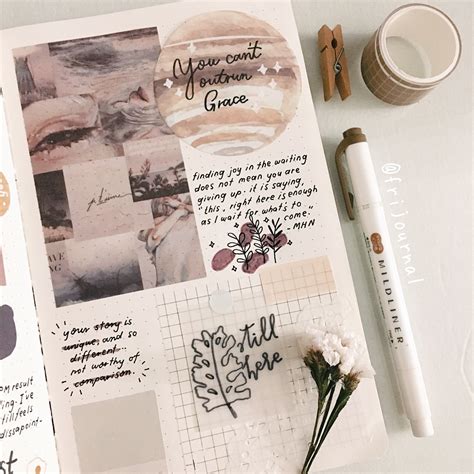 You can't
outrun
Grace
finding joy in the waiting
does not mean you are
giving up. it is saying,
"this, right here is enough
as I wait for what's to
come."
-MHN
je t'aime
your story is
unique, and so
different
not worthy of
comparison.
still
here
result
I've
feels
MILDLINER
@frijournal